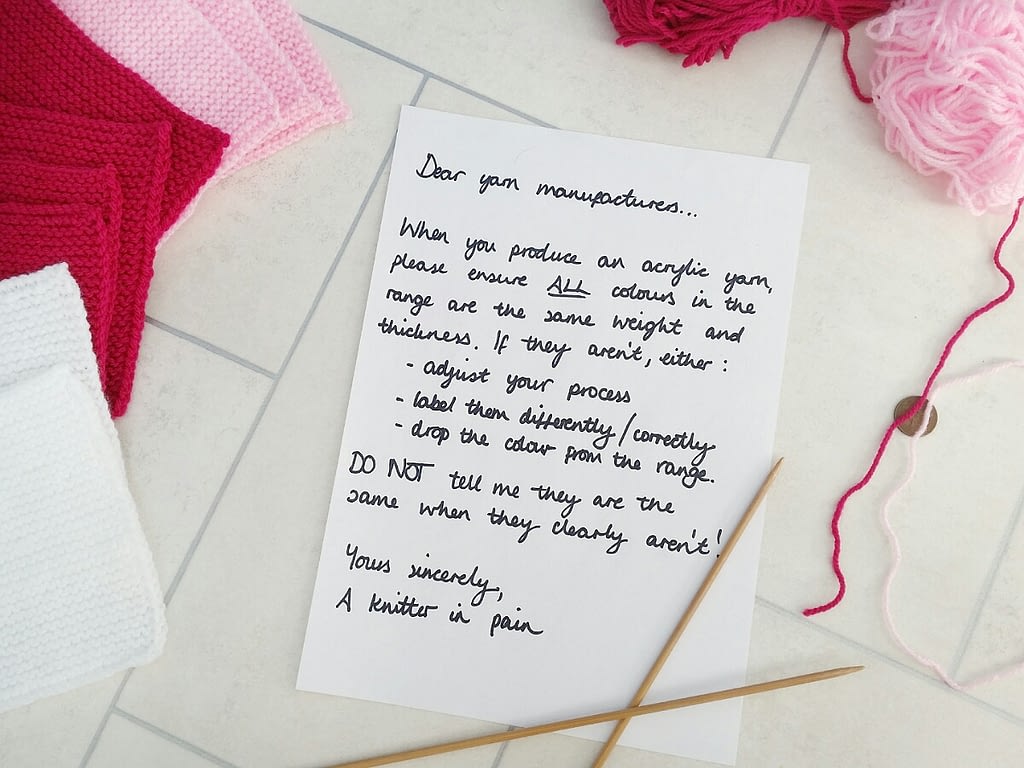 Dear yarn manufacturers...
When you produce an acrylic yarn,
please ensure ALL colours in the
range are the same weight and
thickness. If they aren't, either:
- adjust your process
- label them differently/correctly
- drop the colour from the range.
DO NOT tell me they are the
same when they clearly aren't!
Yours sincerely,
A knitter in pain